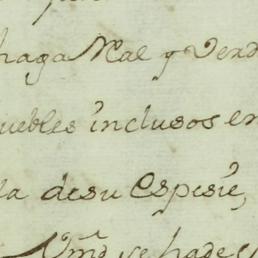 haga Real y Verd
uebles inclusos en
la desu Espesie,
se hade